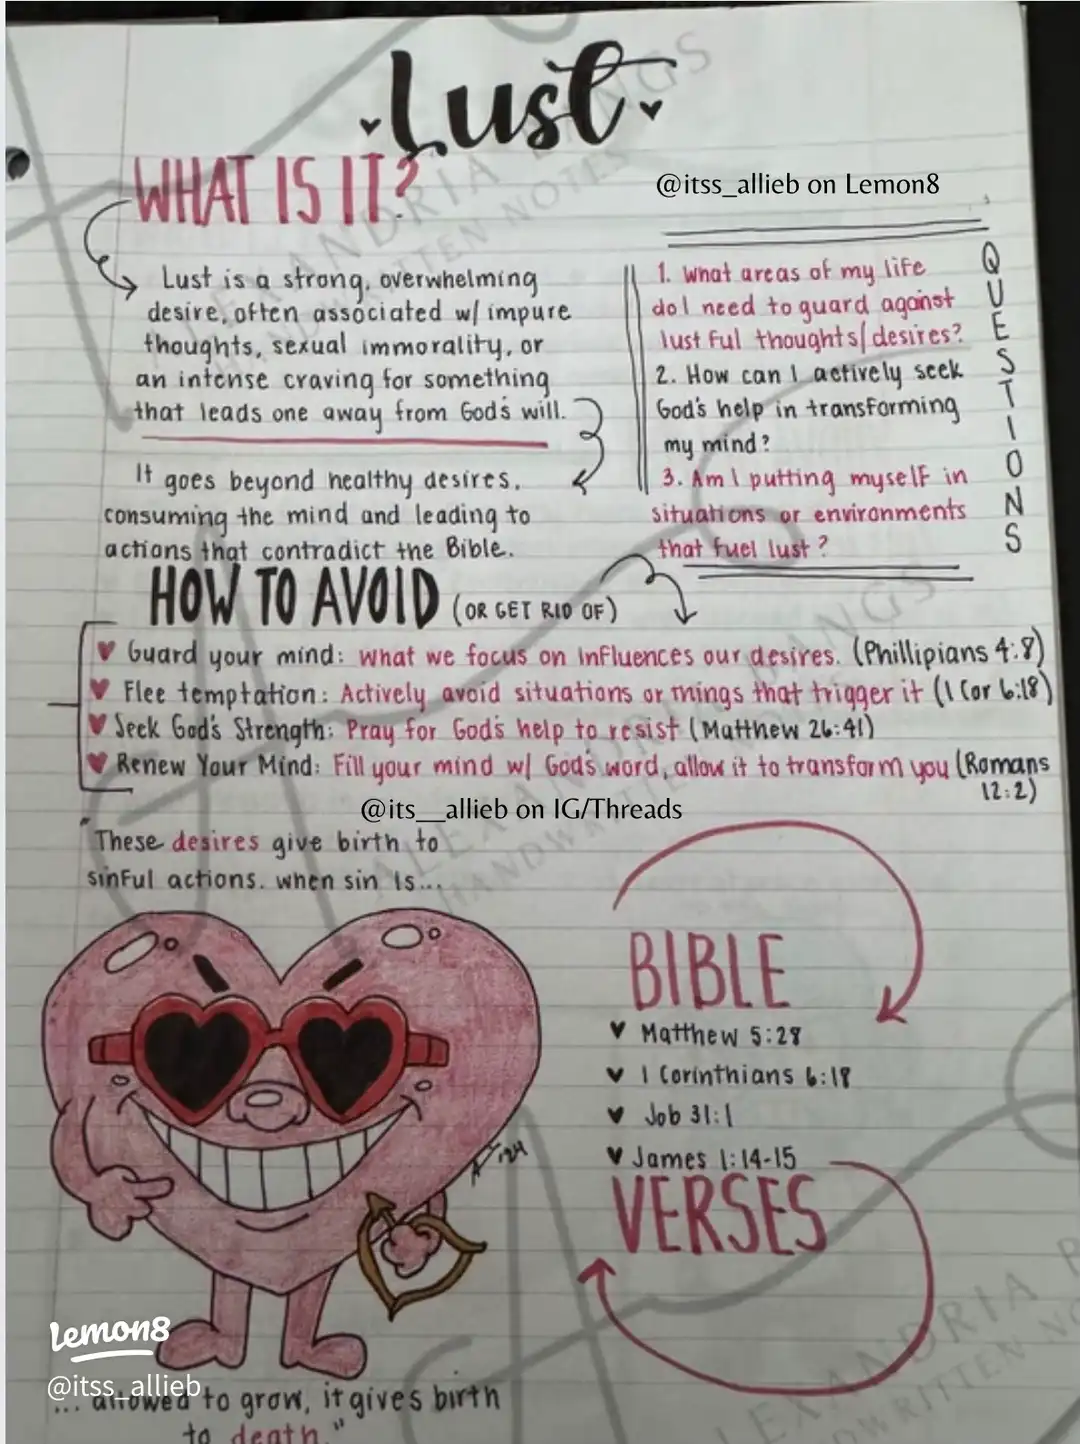 Lust
WHAT IS IT?
@itss_allieb on Lemon8
Lust is a strong, overwhelming
desire, often associated w/ impure
thoughts, sexual immorality, or
an intense craving for something
that leads one away from God's will.
It goes beyond healthy desires,
consuming the mind and leading to
actions that contradict the Bible.
QUESTIONS
1. What areas of my life
do I need to guard against
lustful thoughts/desires?
2. How can I actively seek
God's help in transforming
my mind?
3. Am I putting myself in
situations or environments
that fuel lust?
HOW TO AVOID (OR GET RID OF)
Guard your mind: what we focus on influences our desires. (Phillipians 4:8)
Flee temptation: Actively avoid situations or things that trigger it (1 Cor 6:18)
Seek God's Strength: Pray for God's help to resist (Matthew 26:41)
Renew Your Mind: Fill your mind w/ God's word, allow it to transform you (Romans
12:2)
@its__allieb on IG/Threads
"These desires give birth to
sinful actions. when sin is...
BIBLE
Matthew 5:28
1 Corinthians 6:18
Job 31:1
James 1:14-15
VERSES
'24
Lemon8
@itss_allieb
... allowed to grow, it gives birth
to death."
ALEXANDRIA BANGS
HANDWRITTEN NOTES